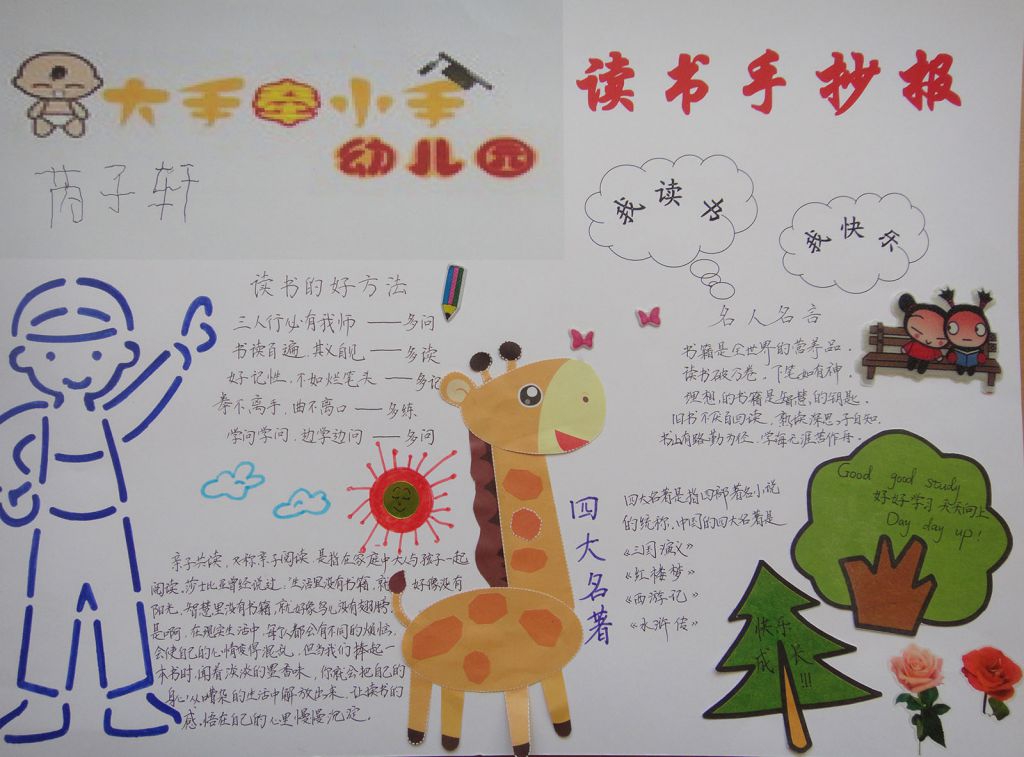 大手牵小手
幼儿园
芮子轩
读书手抄报
我读书
我快乐
读书的好方法
三人行必有我师 ——多问
书读百遍，其义自见 ——多读
好记性，不如烂笔头 ——多记
拳不离手，曲不离口——多练
学问学问，边学边问 ——多问
名人名言
书籍是全世界的营养品.
读书破万卷，下笔如有神.
理想的书籍是智慧的钥匙.
旧书不厌百回读，熟读深思子自知.
书山有路勤为径，学海无涯苦作舟.
四大名著
四大名著是指四部著名小说
的统称，中国的四大名著是
《三国演义》
《红楼梦》
《西游记》
《水浒传》
Good good study
好好学习 天天向上
Day day up!
快乐
成长
!!!
亲子共读，又称亲子阅读，是指在家庭中大人与孩子一起
阅读，莎士比亚曾经说过，生活里没有书籍，就 好像没有
阳光，智慧里没有书籍，就好像鸟儿没有翅膀
是啊，在现实生活中，每个人都会有不同的烦恼，
会使自己的心情变得混沌，但当我们捧起一
本书时，闻着淡淡的墨香味，你就会把自己的
身心从嘈杂的生活中解放出来，让读书的
感悟在自己的心里慢慢沉淀.